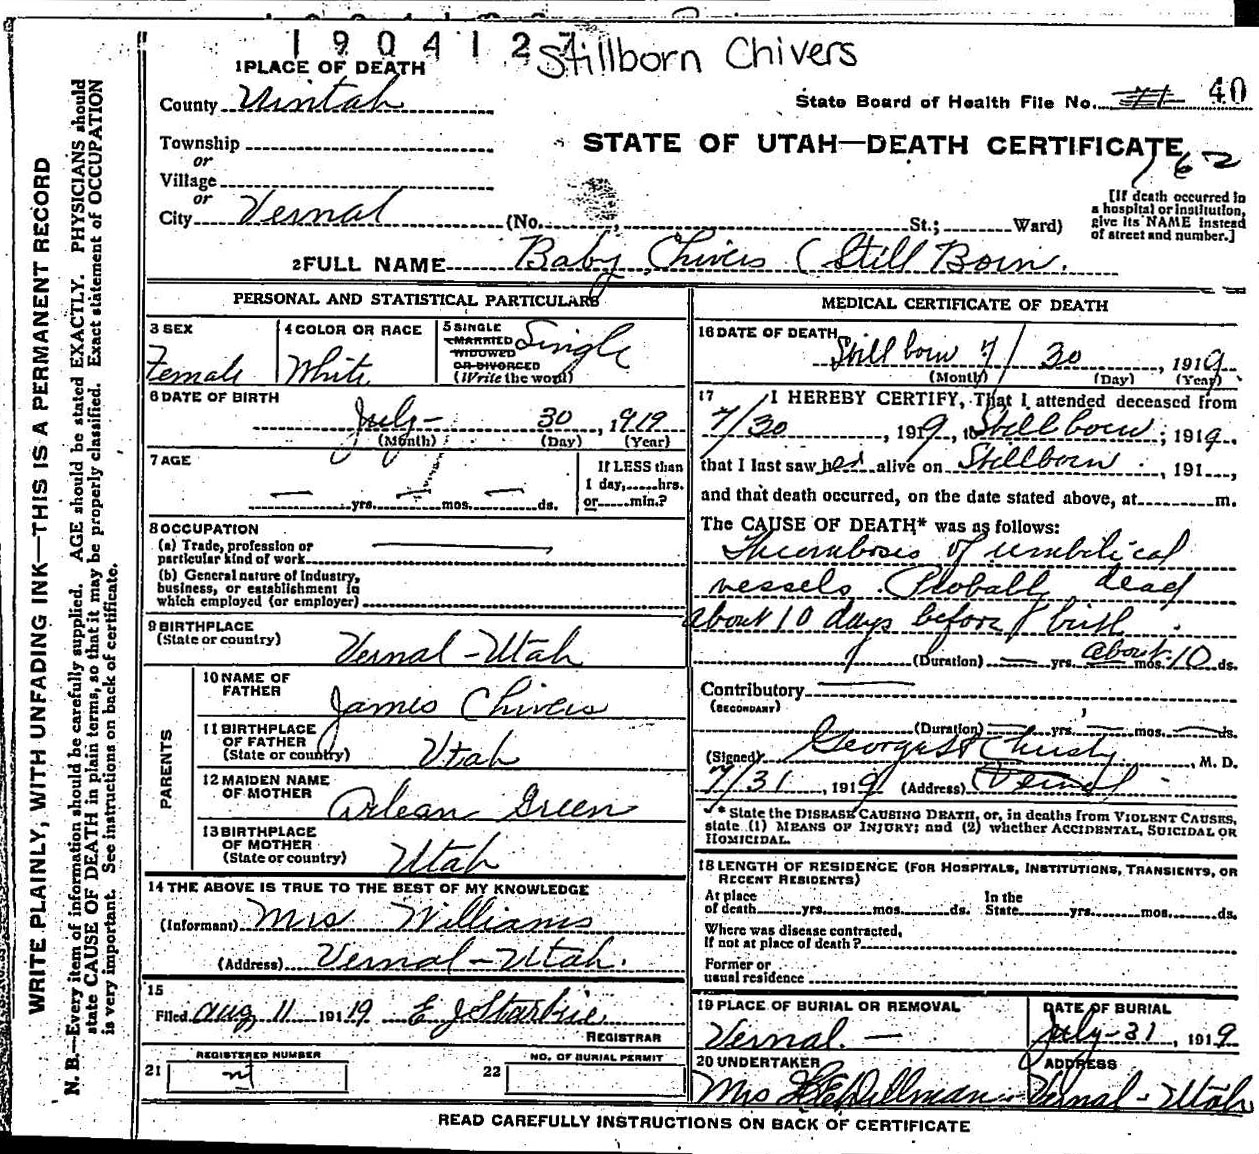 1904127
Stillborn Chivers
1 PLACE OF DEATH
County Uintah
State Board of Health File No. 71 40
Township
or
Village
or
City Vernal
STATE OF UTAH—DEATH CERTIFICATE
162
(No. , St.; Ward)
[If death occurred in
a hospital or institution,
give its NAME instead
of street and number.]
2 FULL NAME Baby Chivers (Still Born.
PERSONAL AND STATISTICAL PARTICULARS
3 SEX
Female
4 COLOR OR RACE
White
5 SINGLE
MARRIED
WIDOWED
OR DIVORCED
(Write the word)
Single
6 DATE OF BIRTH
July- 30, 1919
(Month) (Day) (Year)
7 AGE
— yrs. — mos. — ds.
If LESS than
1 day, hrs.
or min.?
8 OCCUPATION
(a) Trade, profession or
particular kind of work
(b) General nature of industry,
business, or establishment in
which employed (or employer)
9 BIRTHPLACE
(State or country) Vernal-Utah
PARENTS
10 NAME OF
FATHER James Chivers
11 BIRTHPLACE
OF FATHER
(State or country) Utah
12 MAIDEN NAME
OF MOTHER Orlean Green
13 BIRTHPLACE
OF MOTHER
(State or country) Utah
14 THE ABOVE IS TRUE TO THE BEST OF MY KNOWLEDGE
(Informant) Mrs Williams
(Address) Vernal-Utah.
15
Filed Aug 11 1919 E J
REGISTRAR
REGISTERED NUMBER
21
NO. OF BURIAL PERMIT
22
MEDICAL CERTIFICATE OF DEATH
16 DATE OF DEATH
Still born 7/30, 1919
(Month) (Day) (Year)
17 I HEREBY CERTIFY, That I attended deceased from
7/30, 1919, to Still born, 1919.
that I last saw her alive on Stillborn, 191 ,
and that death occurred, on the date stated above, at m.
The CAUSE OF DEATH* was as follows:
Thrombosis of umbilical
vessels. Probably dead
about 10 days before birth.
(Duration) — yrs. about mos. 10 ds.
Contributory
(SECONDARY)
(Duration) — yrs. — mos. — ds.
(Signed) George Christy, M. D.
7/31, 1919 (Address) Vernal
* State the DISEASE CAUSING DEATH, or, in deaths from VIOLENT CAUSES,
state (1) MEANS OF INJURY; and (2) whether ACCIDENTAL, SUICIDAL OR
HOMICIDAL.
18 LENGTH OF RESIDENCE (FOR HOSPITALS, INSTITUTIONS, TRANSIENTS, OR
RECENT RESIDENTS)
At place
of death yrs. mos. ds. In the
State yrs. mos. ds.
Where was disease contracted,
If not at place of death?
Former or
usual residence
19 PLACE OF BURIAL OR REMOVAL
Vernal. —
DATE OF BURIAL
July-31, 1919
20 UNDERTAKER
Mrs Dillman
ADDRESS
Vernal-Utah
READ CAREFULLY INSTRUCTIONS ON BACK OF CERTIFICATE
WRITE PLAINLY, WITH UNFADING INK—THIS IS A PERMANENT RECORD
N. B.—Every item of information should be carefully supplied. AGE should be stated EXACTLY. PHYSICIANS should
state CAUSE OF DEATH in plain terms, so that it may be properly classified. Exact statement of OCCUPATION
is very important. See instructions on back of certificate.